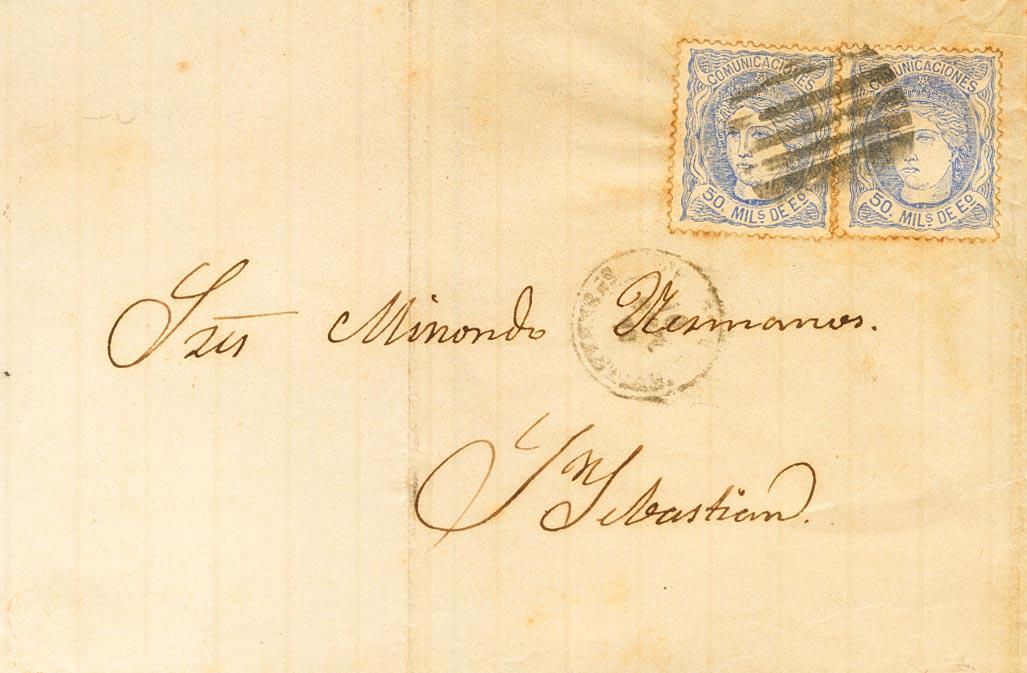 COMUNICACIONES COMUNICACIONES
50. MILS DE Eo. 50. MILS DE Eo.
Sres Minondo Hermanos.
Sn Sebastian.